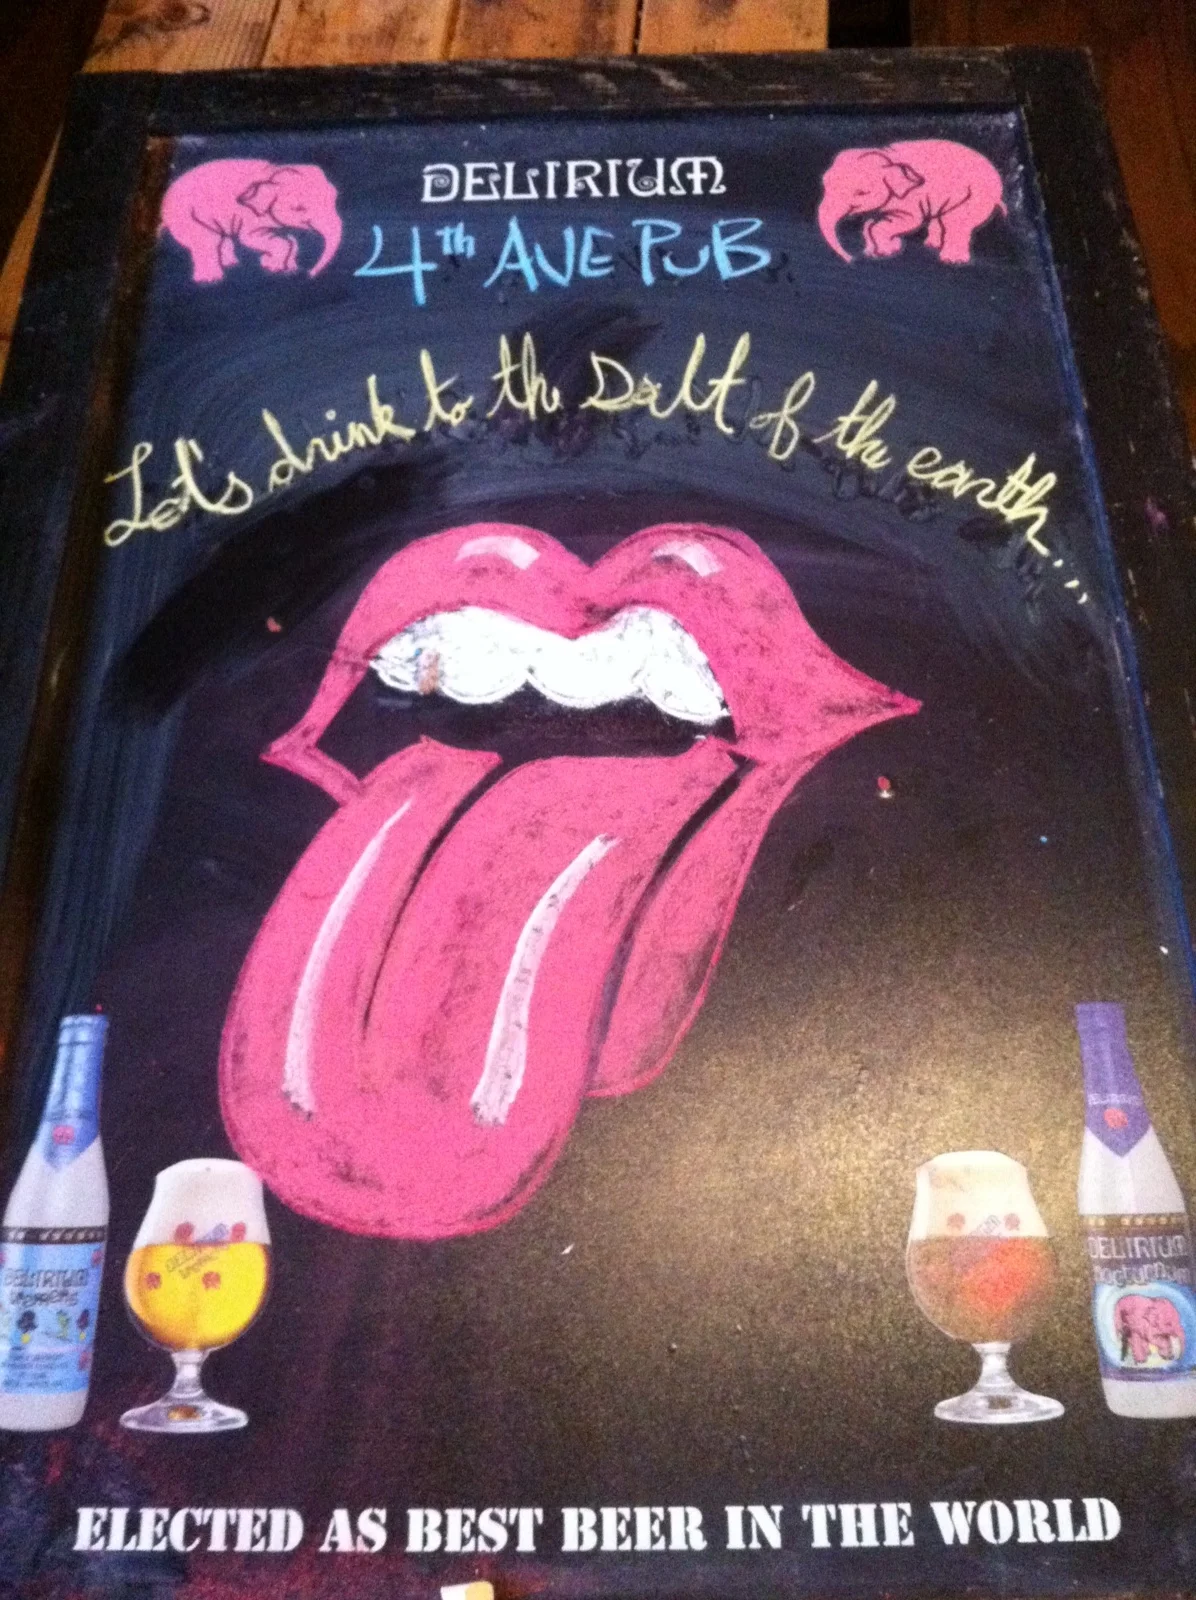 DELIRIUM
4th AVE PUB
Let's drink to the salt of the earth...
DELIRIUM
DELIRIUM
tremens
DELIRIUM
nocturnum
ELECTED AS BEST BEER IN THE WORLD